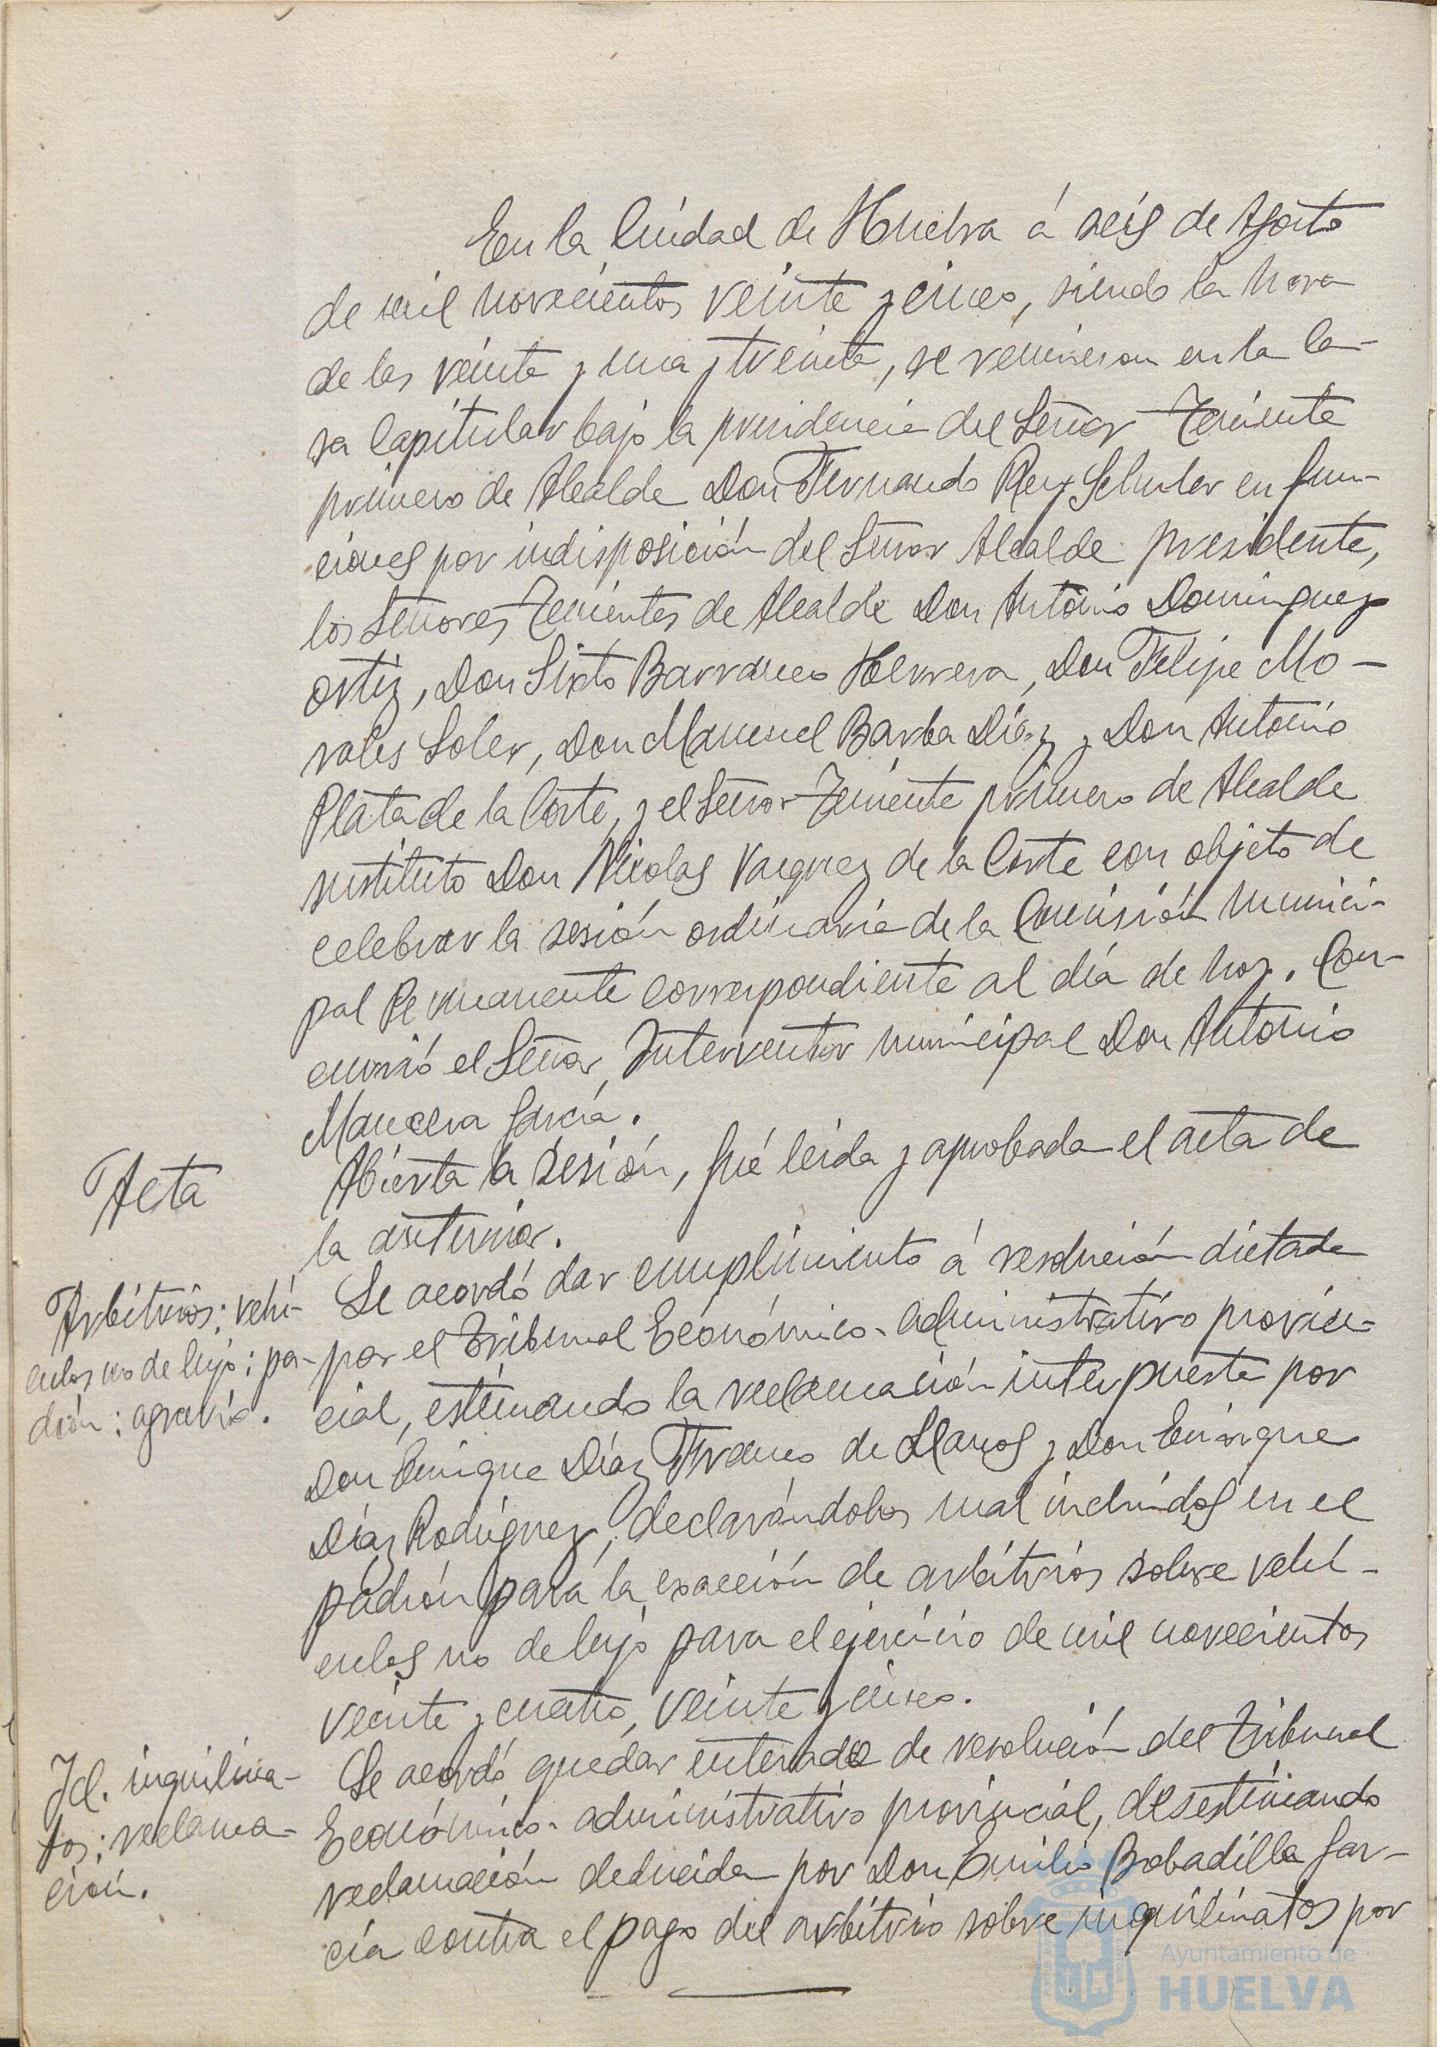 En la Ciudad de Huelva á seis de Agosto
de mil novecientos veinte y cinco, siendo la hora
de las veinte y una y treinta, se reunieron en la Ca-
sa Capitular bajo la presidencia del Señor Teniente
primero de Alcalde Don Fernando Rey Schuler en fun-
ciones por indisposición del Señor Alcalde presidente,
los Señores Tenientes de Alcalde Don Antonio Dominguez
Ortiz, Don Sixto Barranco Herrera, Don Felipe Mo-
rales Soler, Don Manuel Barba Díaz y Don Antonio
Plata de la Corte, y el Señor Teniente primero de Alcalde
sustituto Don Nicolas Vazquez de la Corte con objeto de
celebrar la sesión ordinaria de la Comisión munici-
pal Permanente correspondiente al día de hoy. Con-
currió el Señor Interventor municipal Don Antonio
Mancera García.
Acta
Abierta la sesión, fué leída y aprobada el acta de
la anterior.
Arbitrios: vehí-
culos no de lujo: pa-
drón: agravio.
Se acordó dar cumplimiento á resolución dictada
por el Tribunal Económico-administrativo provin-
cial, estimando la reclamación interpuesta por
Don Enrique Díaz Franco de Llanos y Don Enrique
Díaz Rodríguez, declarándolos mal incluidos en el
padrón para la exacción de arbitrios sobre vehí-
culos no de lujo para el ejercicio de mil novecientos
veinte y cuatro, veinte y cinco.
Id. inquilina-
tos: reclama-
ción.
Se acordó quedar enterado de resolución del Tribunal
Económico-administrativo provincial, desestimando
reclamación deducida por Don Emilio Bobadilla Gar-
cía contra el pago del arbitrio sobre inquilinatos por
Ayuntamiento de
HUELVA